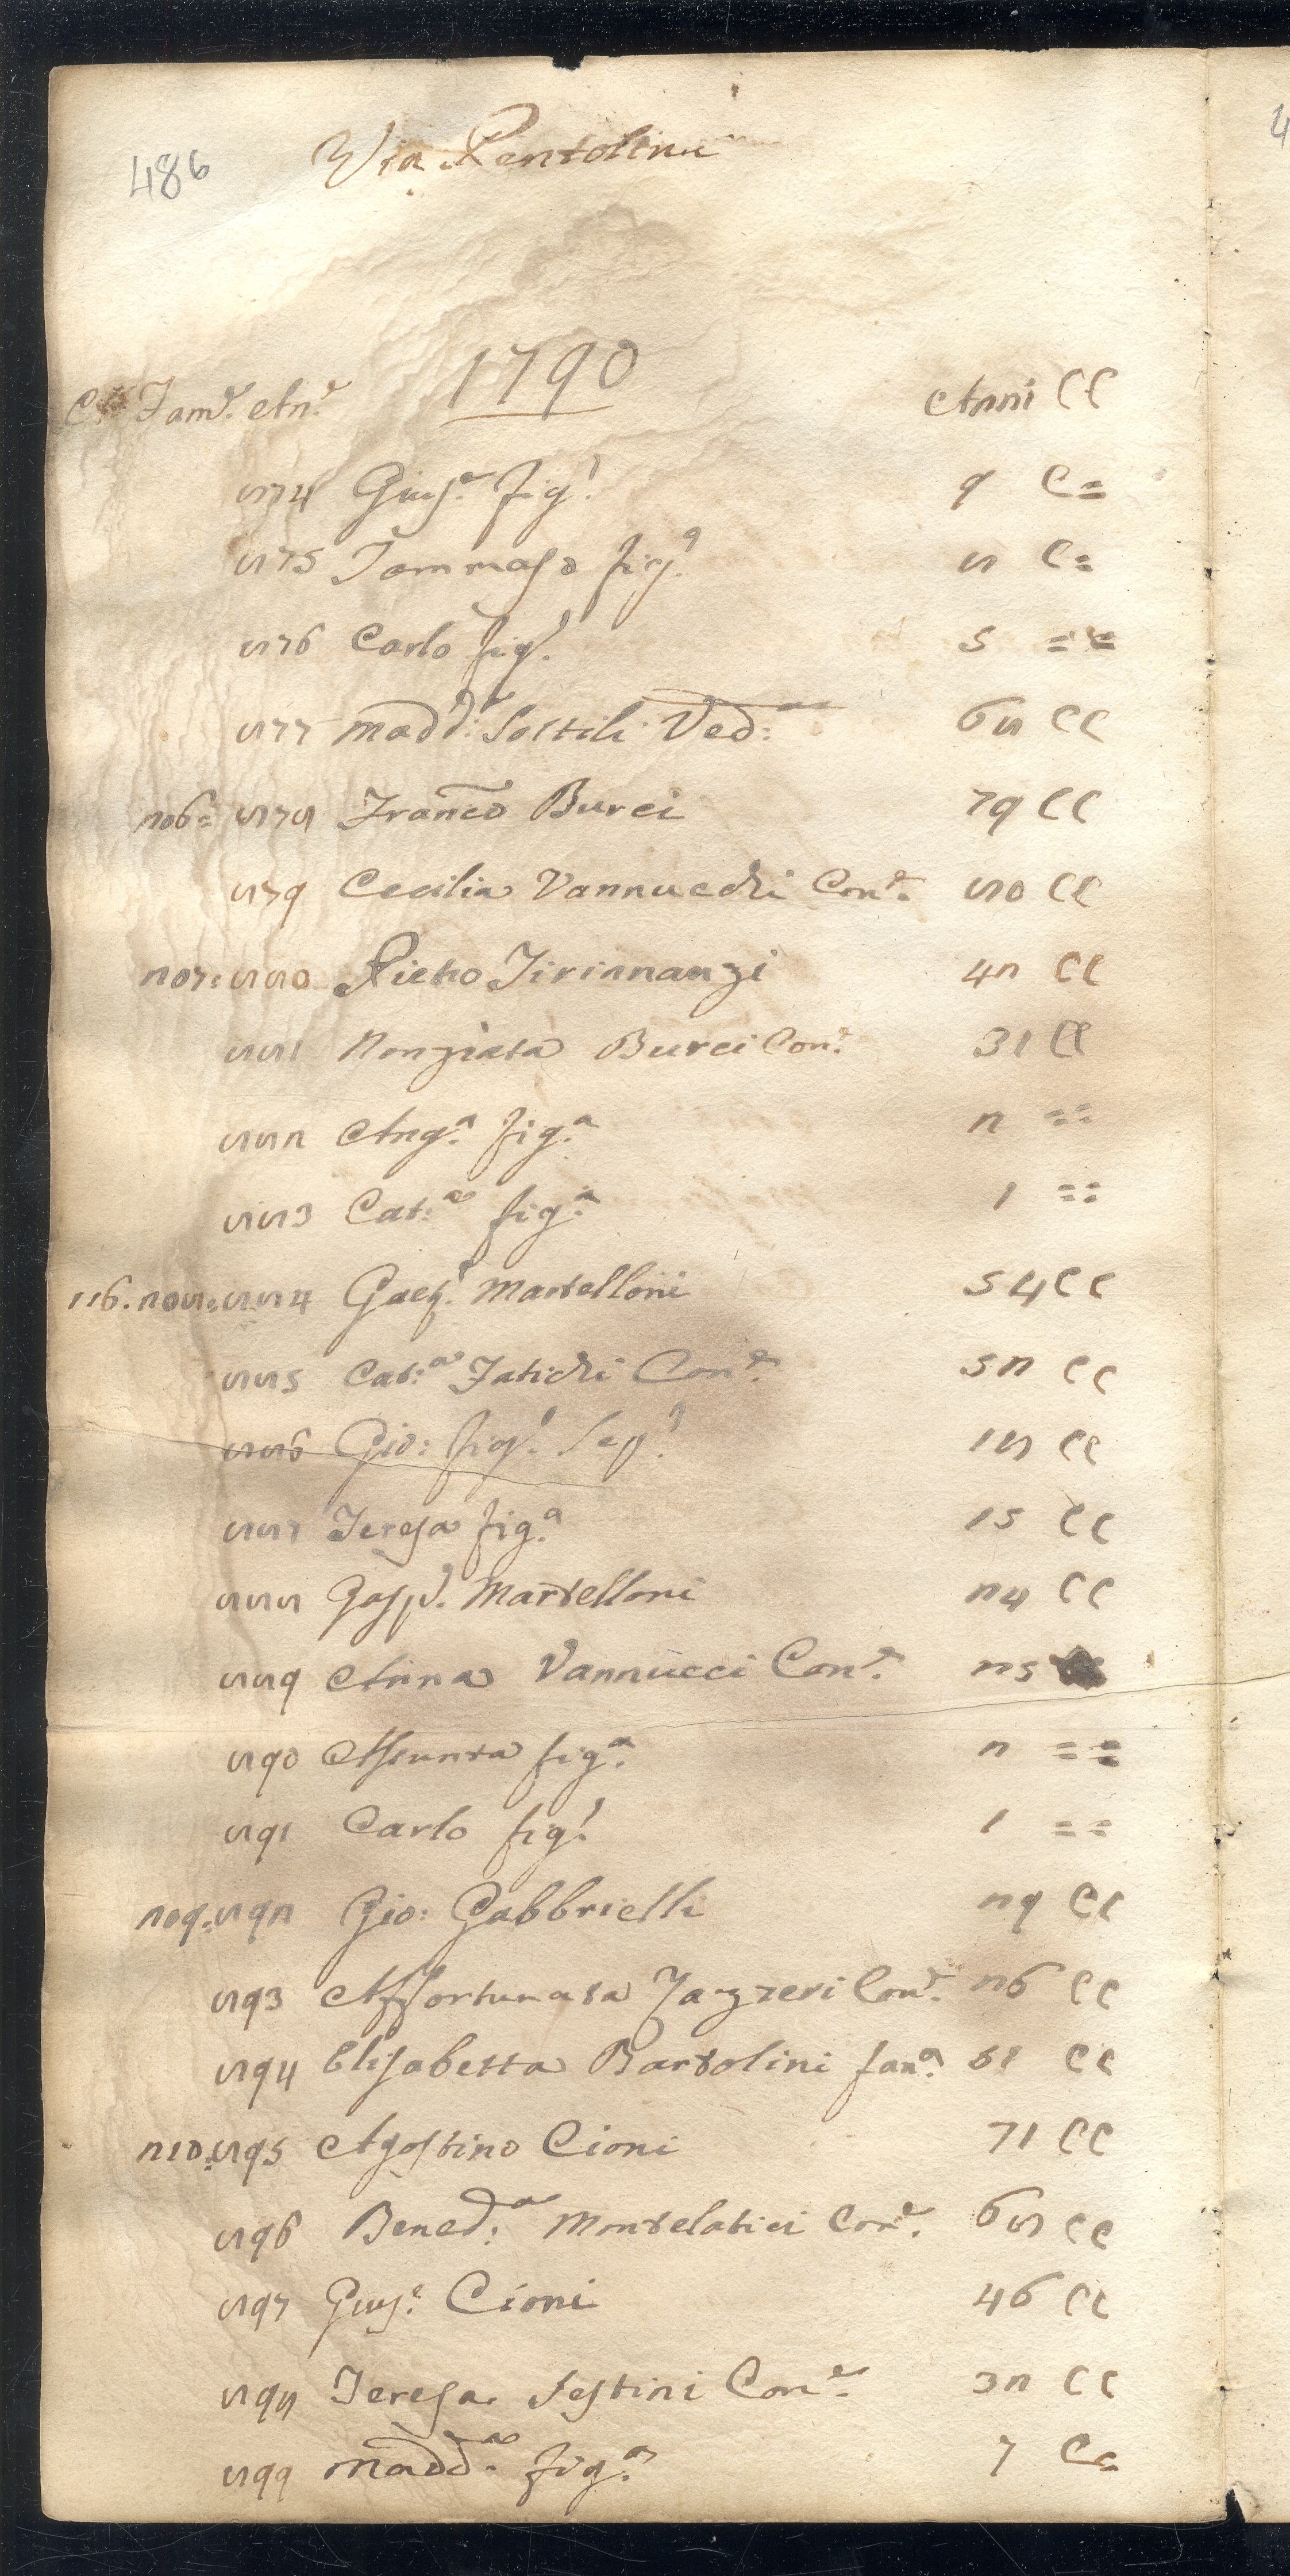 486 Via Pentolina
1790
C.e Fam.e An.e Anni CC
874 Gius.e fig.o 9 C=
875 Tommaso fig.o 8 C=
876 Carlo fig.o 5 ==
877 Madd.a Sostili Ved.a 68 CC
206= 878 Franco Burci 79 CC
879 Cecilia Vannucchi Con.e 80 CC
207: 880 Pietro Tirinnanzi 42 CC
881 Nonziata Burci Con.e 31 CC
882 Ang.a fig.a 2 ==
883 Cat.a fig.a 1 ==
116. 208: 884 Gaet.o Martelloni 54 CC
885 Cat.a Fatichi Con.e 52 CC
886 Gio: fig.o Seg.o 18 CC
887 Teresa fig.a 15 CC
888 Gasp.o Martelloni 24 CC
889 Anna Vannucci Con.e 25
890 Assunta fig.a 2 ==
891 Carlo fig.o 1 ==
209. 892 Gio: Gabbrielli 29 CC
893 Affortunata Con.e 26 CC
894 Elisabetta Bartolini CC
210. 895 Agostino Cioni 71 CC
896 Bened.a Montelatici Con.e 68 CC
897 Gius.e Cioni 46 CC
898 Teresa Sestini Con.e 32 CC
899 Madd.a fig.a 7 C=